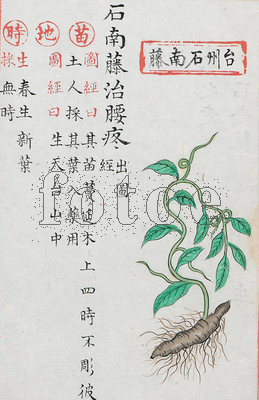 台州石南藤
石南藤治腰疼 出圖經
苗 圖經曰其苗蔓延木上四時不彫彼
土人採其葉入藥用
地 圖經曰生天台山中
時 生春生新葉
採無時
fotoe